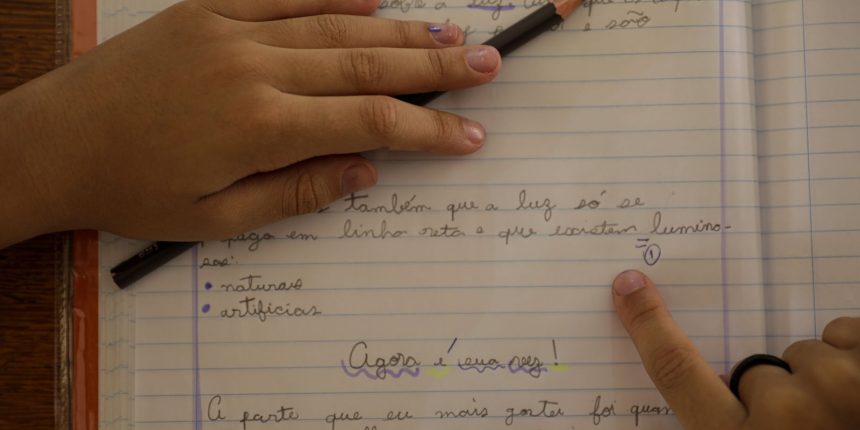 sobre a luz que
e são
também que a luz só se
paga em linha reta e que existem lumino-
sos:
= 1
• naturais
• artificias
Agora é sua vez!
A parte que eu mais gostei foi quan